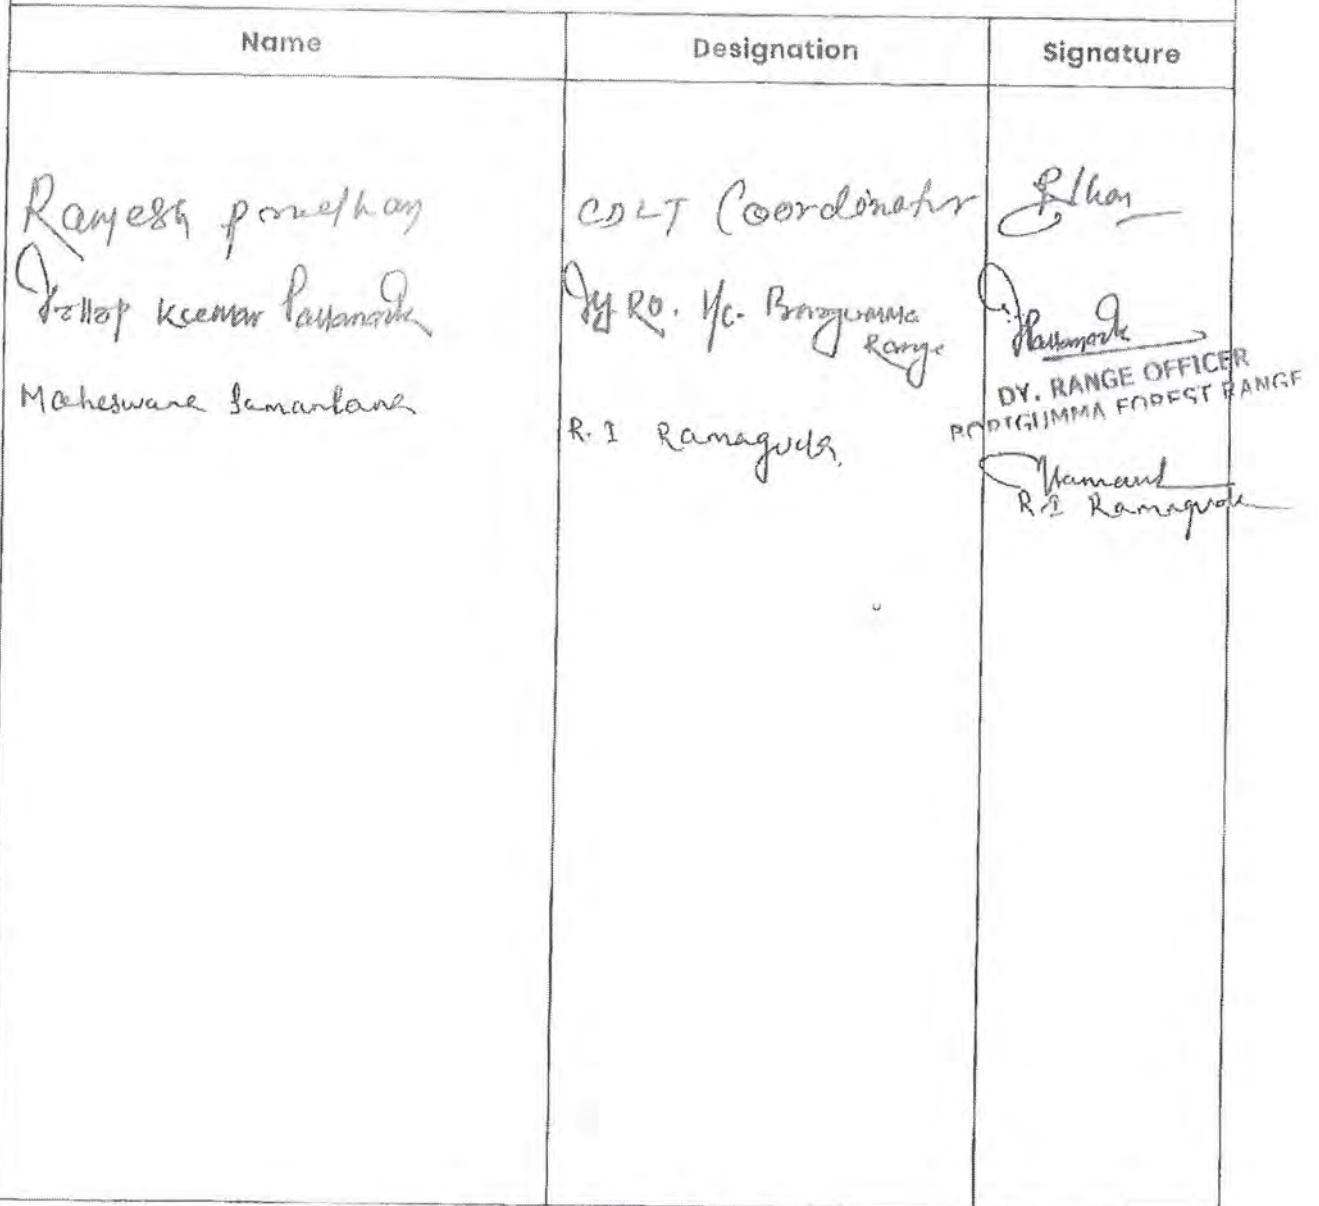 Name Designation Signature
Ramesh pradhan CDLT Coordinator
Kumar Pattanaik Dy RO. I/c. Borigumma
Range
DY. RANGE OFFICER
FOREST RANGE
Maheswara Samantara R. I Ramaguda.
R.I Ramaguda